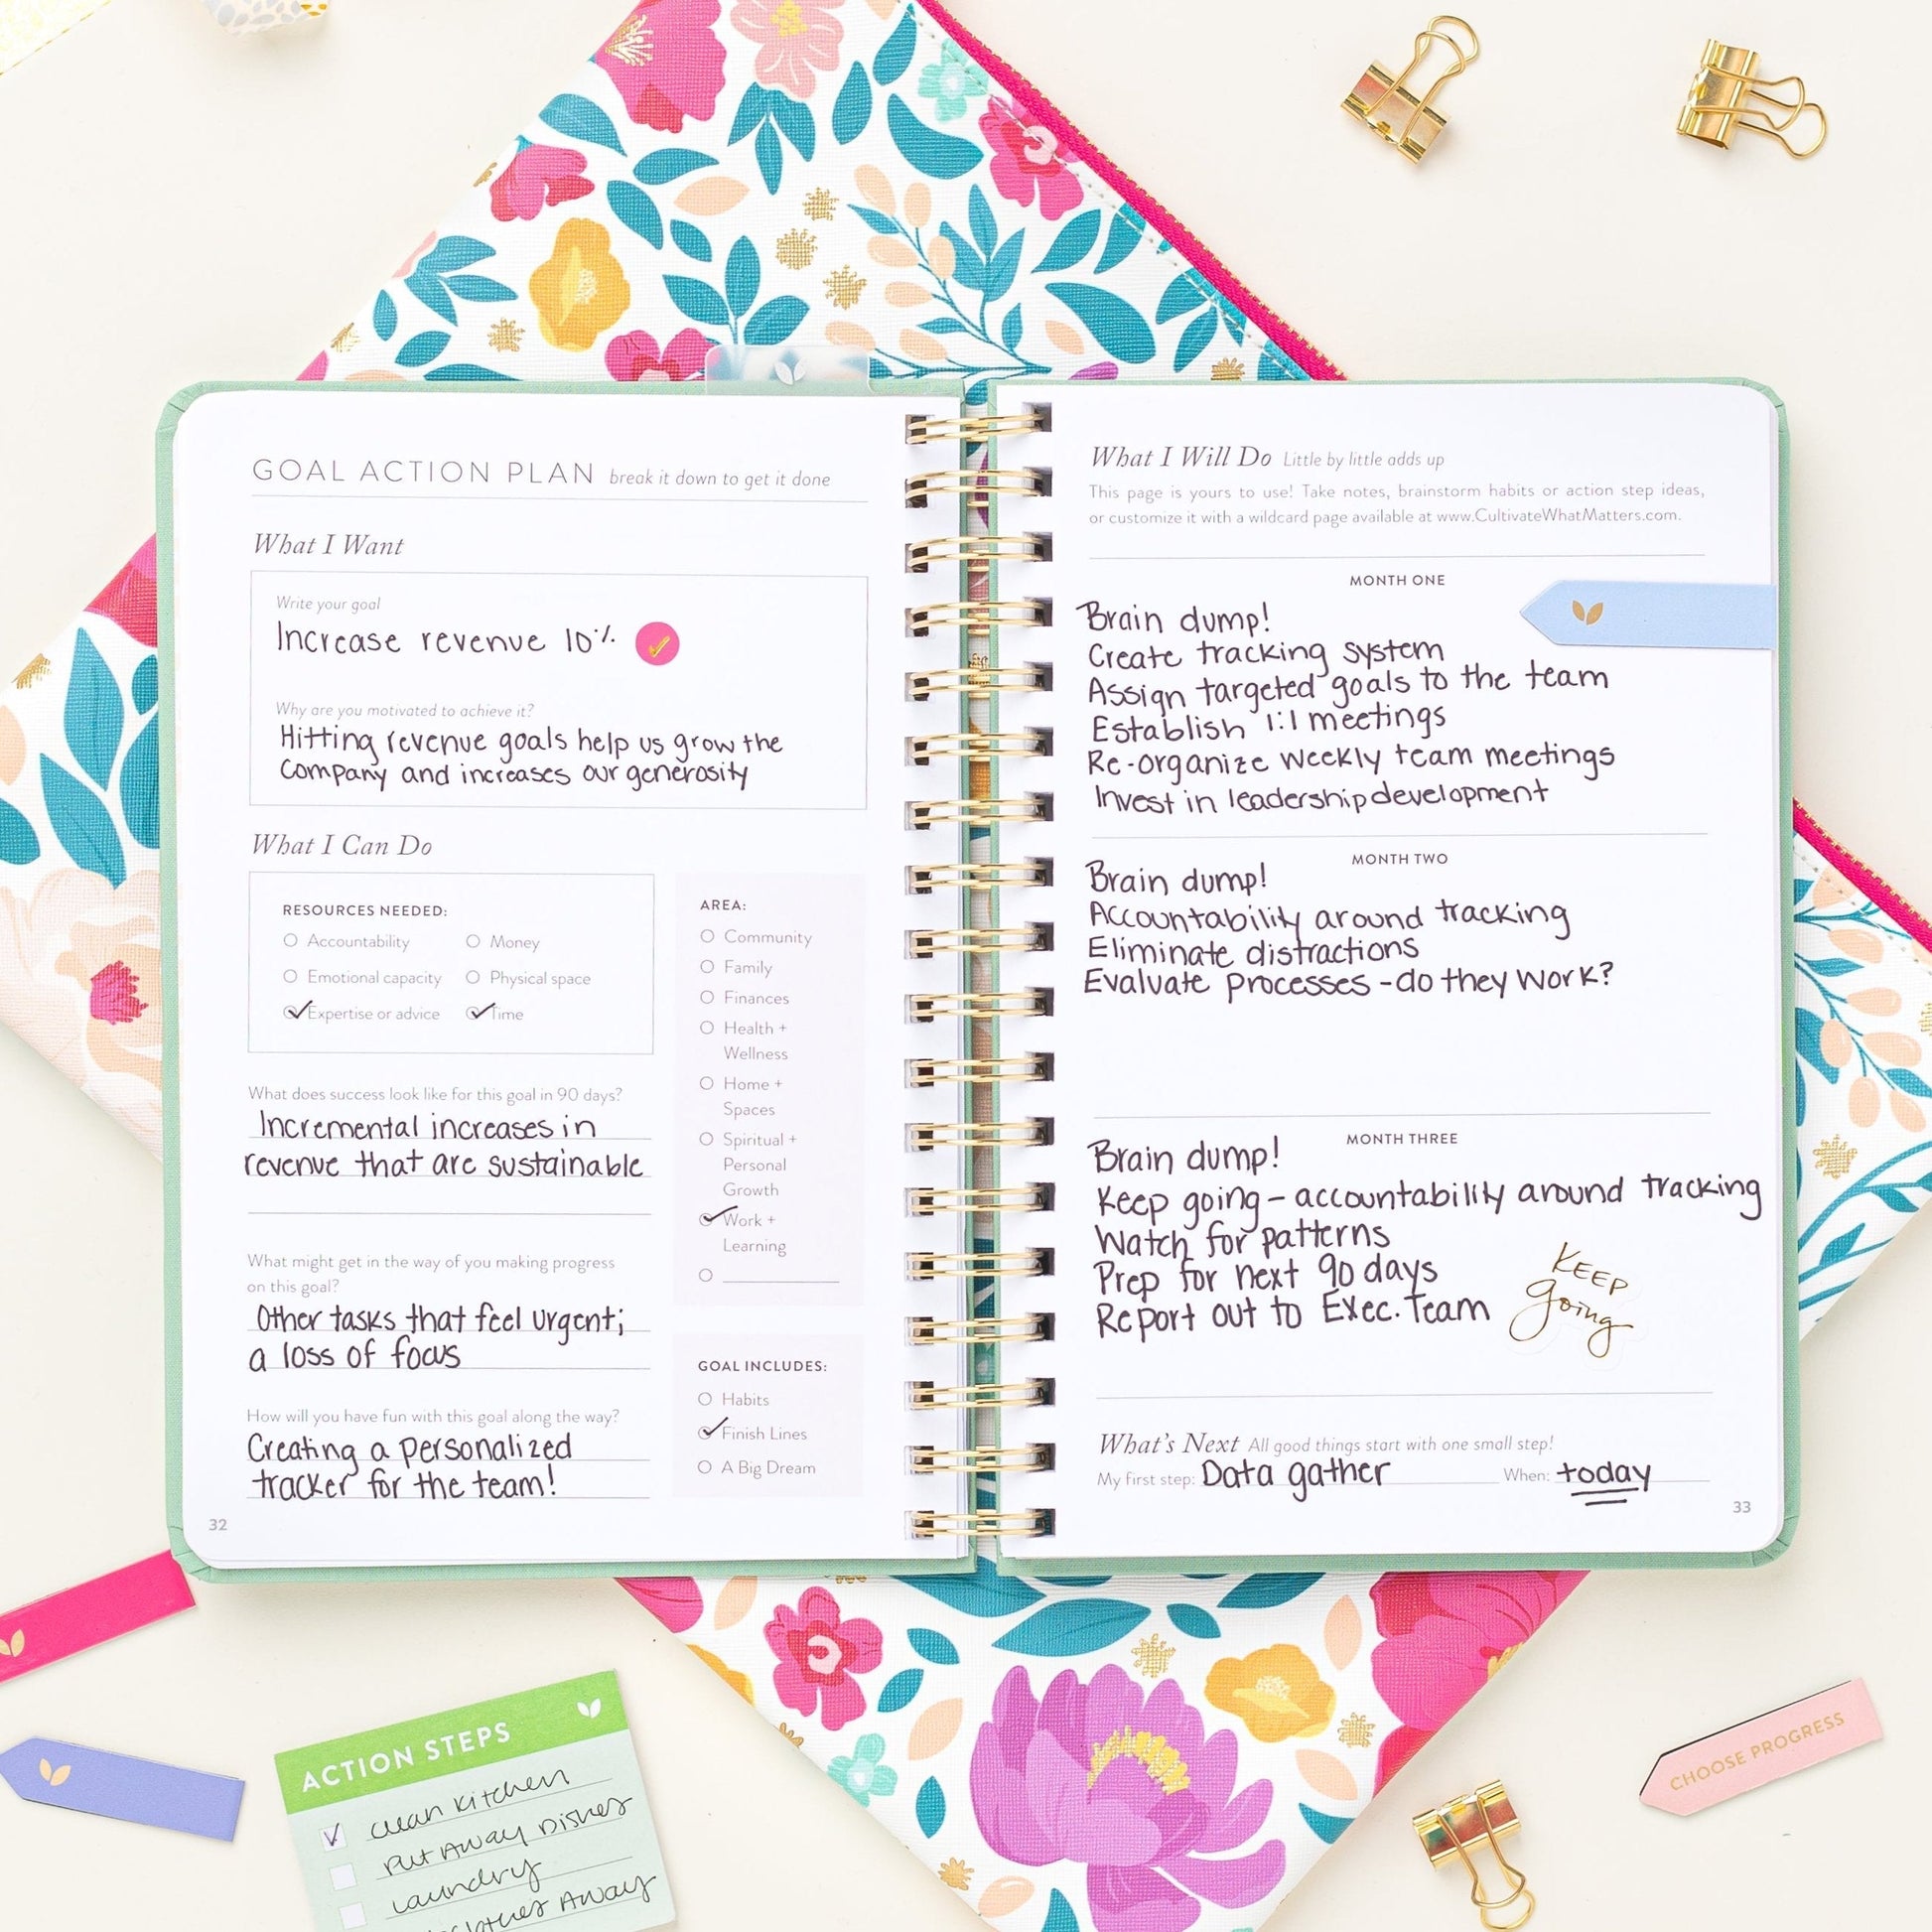 GOAL ACTION PLAN break it down to get it done
What I Want
Write your goal
Increase revenue 10%
Why are you motivated to achieve it?
Hitting revenue goals help us grow the
company and increases our generosity
What I Can Do
RESOURCES NEEDED:
Accountability
Money
Emotional capacity
Physical space
Expertise or advice
Time
What does success look like for this goal in 90 days?
Incremental increases in
revenue that are sustainable
What might get in the way of you making progress
on this goal?
Other tasks that feel urgent;
a loss of focus
How will you have fun with this goal along the way?
Creating a personalized
tracker for the team!
32
AREA:
Community
Family
Finances
Health +
Wellness
Home +
Spaces
Spiritual +
Personal
Growth
Work +
Learning
GOAL INCLUDES:
Habits
Finish Lines
A Big Dream
What I Will Do Little by little adds up
This page is yours to use! Take notes, brainstorm habits or action step ideas,
or customize it with a wildcard page available at www.CultivateWhatMatters.com.
MONTH ONE
Brain dump!
Create tracking system
Assign targeted goals to the team
Establish 1:1 meetings
Re-organize weekly team meetings
Invest in leadership development
MONTH TWO
Brain dump!
Accountability around tracking
Eliminate distractions
Evaluate processes - do they work?
MONTH THREE
Brain dump!
Keep going - accountability around tracking
Watch for patterns
Prep for next 90 days
Report out to Exec. Team
KEEP
going
What's Next All good things start with one small step!
My first step: Data gather When: today
33
ACTION STEPS
clean kitchen
put away dishes
laundry
away
CHOOSE PROGRESS